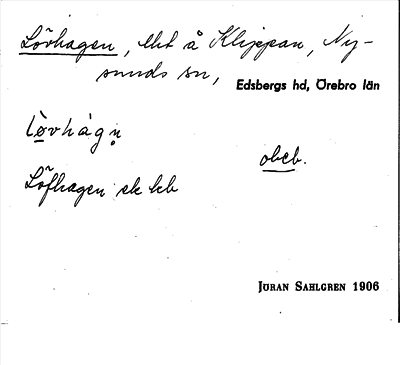 Lövhagen, lht å Klippan, Ny-
sunds sn,
Edsbergs hd, Örebro län
lòvhág
obeb.
Löfhagen ek kb
Jöran Sahlgren 1906